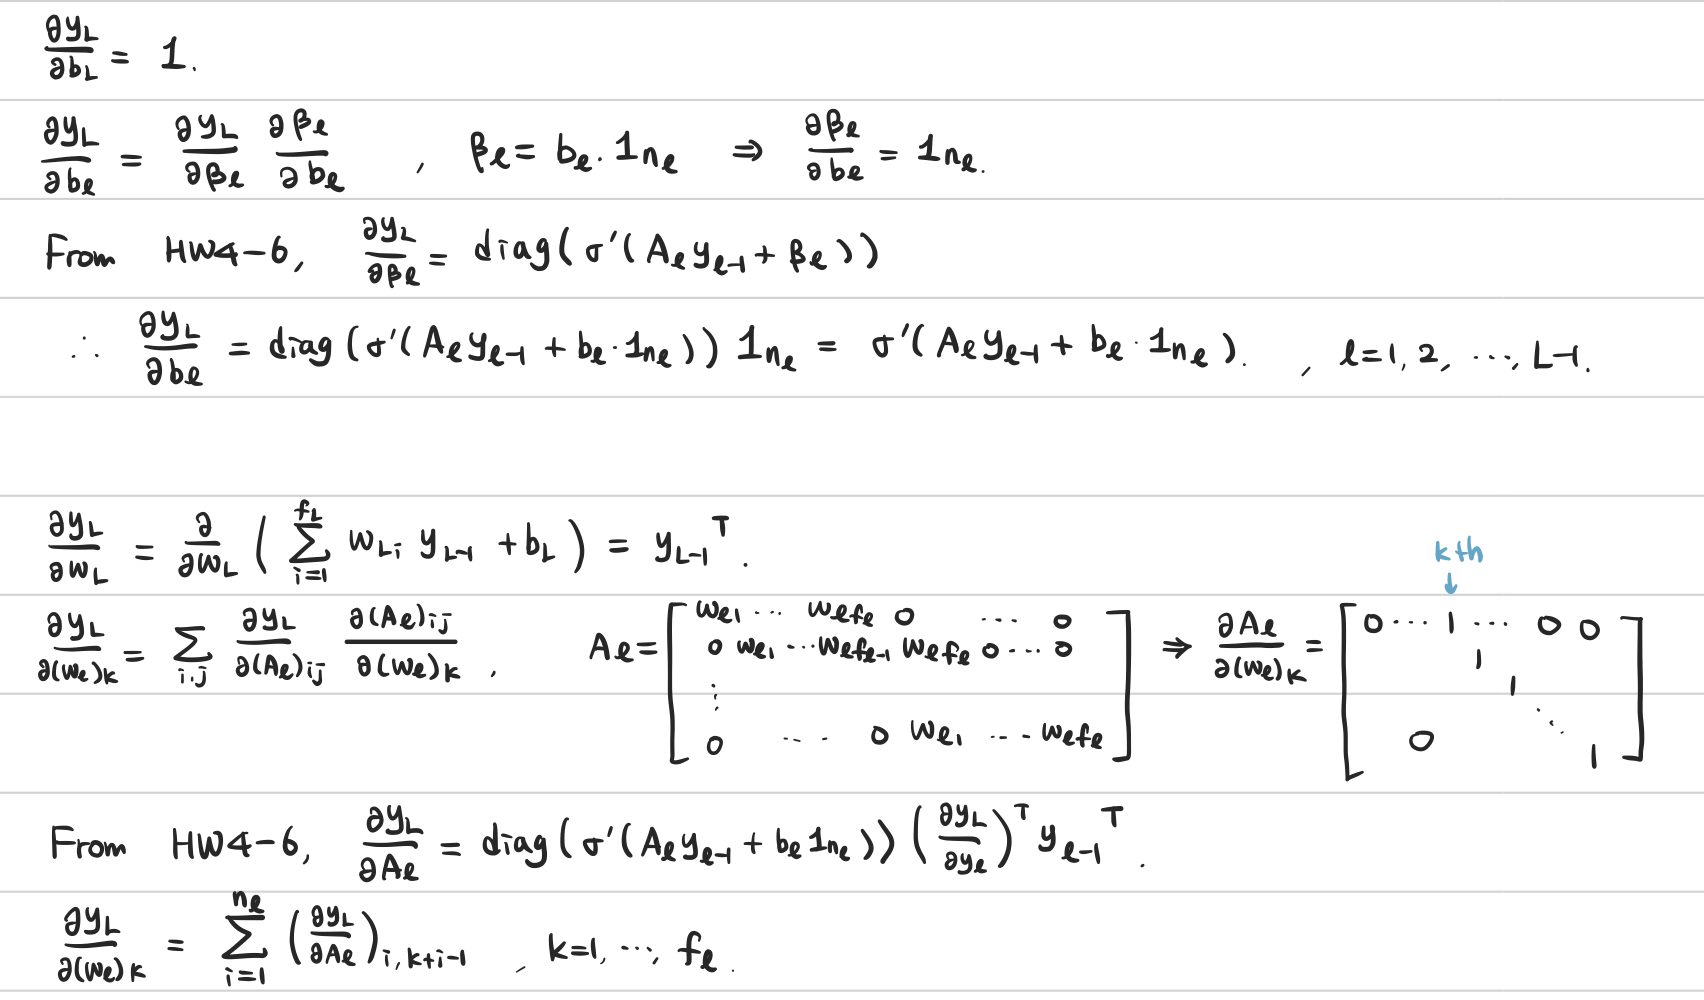 ∂y_L/∂b_L = 1.
∂y_L/∂b_ℓ = ∂y_L/∂β_ℓ ∂β_ℓ/∂b_ℓ , β_ℓ = b_ℓ · 1_{n_ℓ} ⇒ ∂β_ℓ/∂b_ℓ = 1_{n_ℓ}.
From HW4-6, ∂y_L/∂β_ℓ = diag(σ'(A_ℓ y_{ℓ-1} + β_ℓ))
∴ ∂y_L/∂b_ℓ = diag(σ'(A_ℓ y_{ℓ-1} + b_ℓ · 1_{n_ℓ})) 1_{n_ℓ} = σ'(A_ℓ y_{ℓ-1} + b_ℓ · 1_{n_ℓ}). , ℓ = 1, 2, ..., L-1.
∂y_L/∂w_L = ∂/∂w_L ( Σ_{i=1}^{f_L} w_{Li} y_{L-1} + b_L ) = y_{L-1}^T.
kth
↓
∂y_L/∂(w_ℓ)_k = Σ_{i,j} ∂y_L/∂(A_ℓ)_{ij} ∂(A_ℓ)_{ij}/∂(w_ℓ)_k , A_ℓ = [ w_{ℓ1} ... w_{ℓf_ℓ} 0 ... 0 ; 0 w_{ℓ1} ... w_{ℓf_ℓ-1} w_{ℓf_ℓ} 0 ... 0 ; ⋮ ; 0 ... 0 w_{ℓ1} ... w_{ℓf_ℓ} ] ⇒ ∂A_ℓ/∂(w_ℓ)_k = [ 0 ... 1 ... 0 0 ; 1 ; 1 ; ⋱ ; 0 1 ]
From HW4-6, ∂y_L/∂A_ℓ = diag(σ'(A_ℓ y_{ℓ-1} + b_ℓ 1_{n_ℓ})) (∂y_L/∂y_ℓ)^T y_{ℓ-1}^T.
∂y_L/∂(w_ℓ)_k = Σ_{i=1}^{n_ℓ} (∂y_L/∂A_ℓ)_{i, k+i-1} , k = 1, ..., f_ℓ.